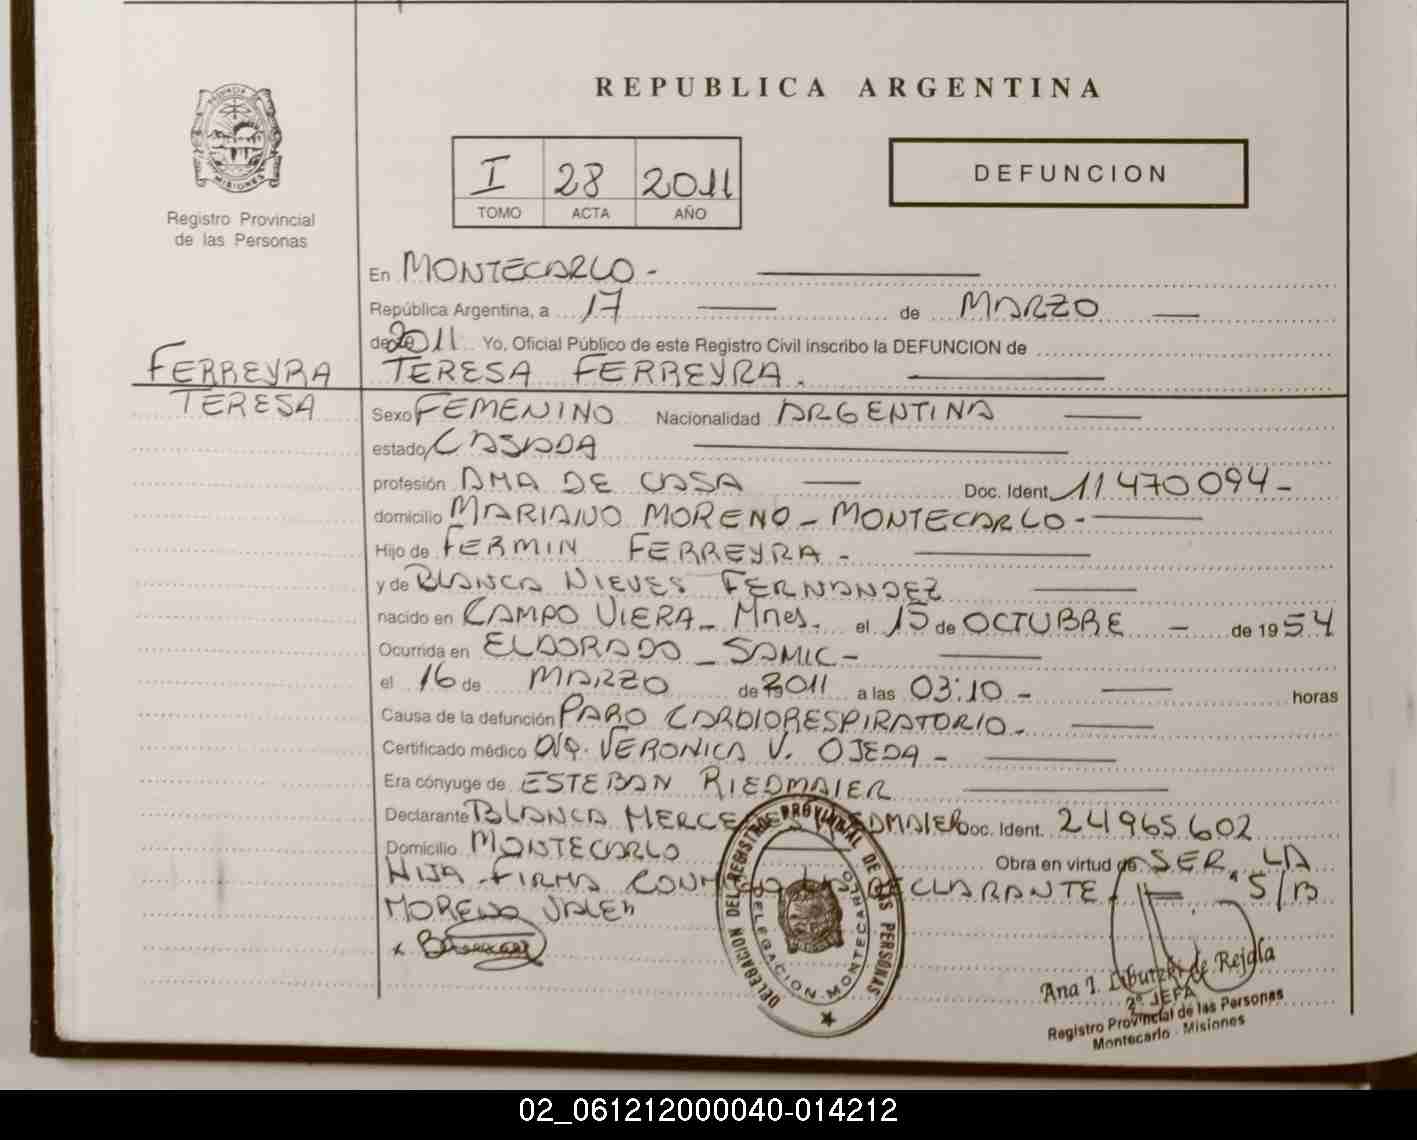 REPUBLICA ARGENTINA
PROVINCIA
MISIONES
Registro Provincial
de las Personas
I 28 2011
TOMO ACTA AÑO
DEFUNCION
En MONTECARLO -
República Argentina, a 17 de MARZO
de 2011 Yo, Oficial Público de este Registro Civil inscribo la DEFUNCION de
FERREYRA TERESA FERREYRA.
TERESA
Sexo FEMENINO Nacionalidad ARGENTINA
estado CASADA
profesión AMA DE CASA Doc. Ident. 11470094-
domicilio MARIANO MORENO - MONTECARLO -
Hijo de FERMIN FERREYRA -
y de BLANCA NIEVES FERNANDEZ
nacido en CAMPO VIERA - Mnes. el 15 de OCTUBRE - de 1954
Ocurrida en ELDORADO - SAMIC -
el 16 de MARZO de 2011 a las 03:10 - horas
Causa de la defunción PARO CARDIORESPIRATORIO -
Certificado médico VERONICA V. OJEDA -
Era cónyuge de ESTEBAN RIEDMAIER
Declarante BLANCA MERCEDES RIEDMAIER Doc. Ident. 24965602
Domicilio MONTECARLO Obra en virtud de SER LA
HIJA - FIRMA CONMIGO LA DECLARANTE S/B
MORENO VALEN
DELEGACION DEL REGISTRO PROVINCIAL DE LAS PERSONAS
DELEGACION MONTECARLO
Ana I. Liburzki de Rejala
2ª JEFA
Registro Provincial de las Personas
Montecarlo - Misiones
02_061212000040-014212